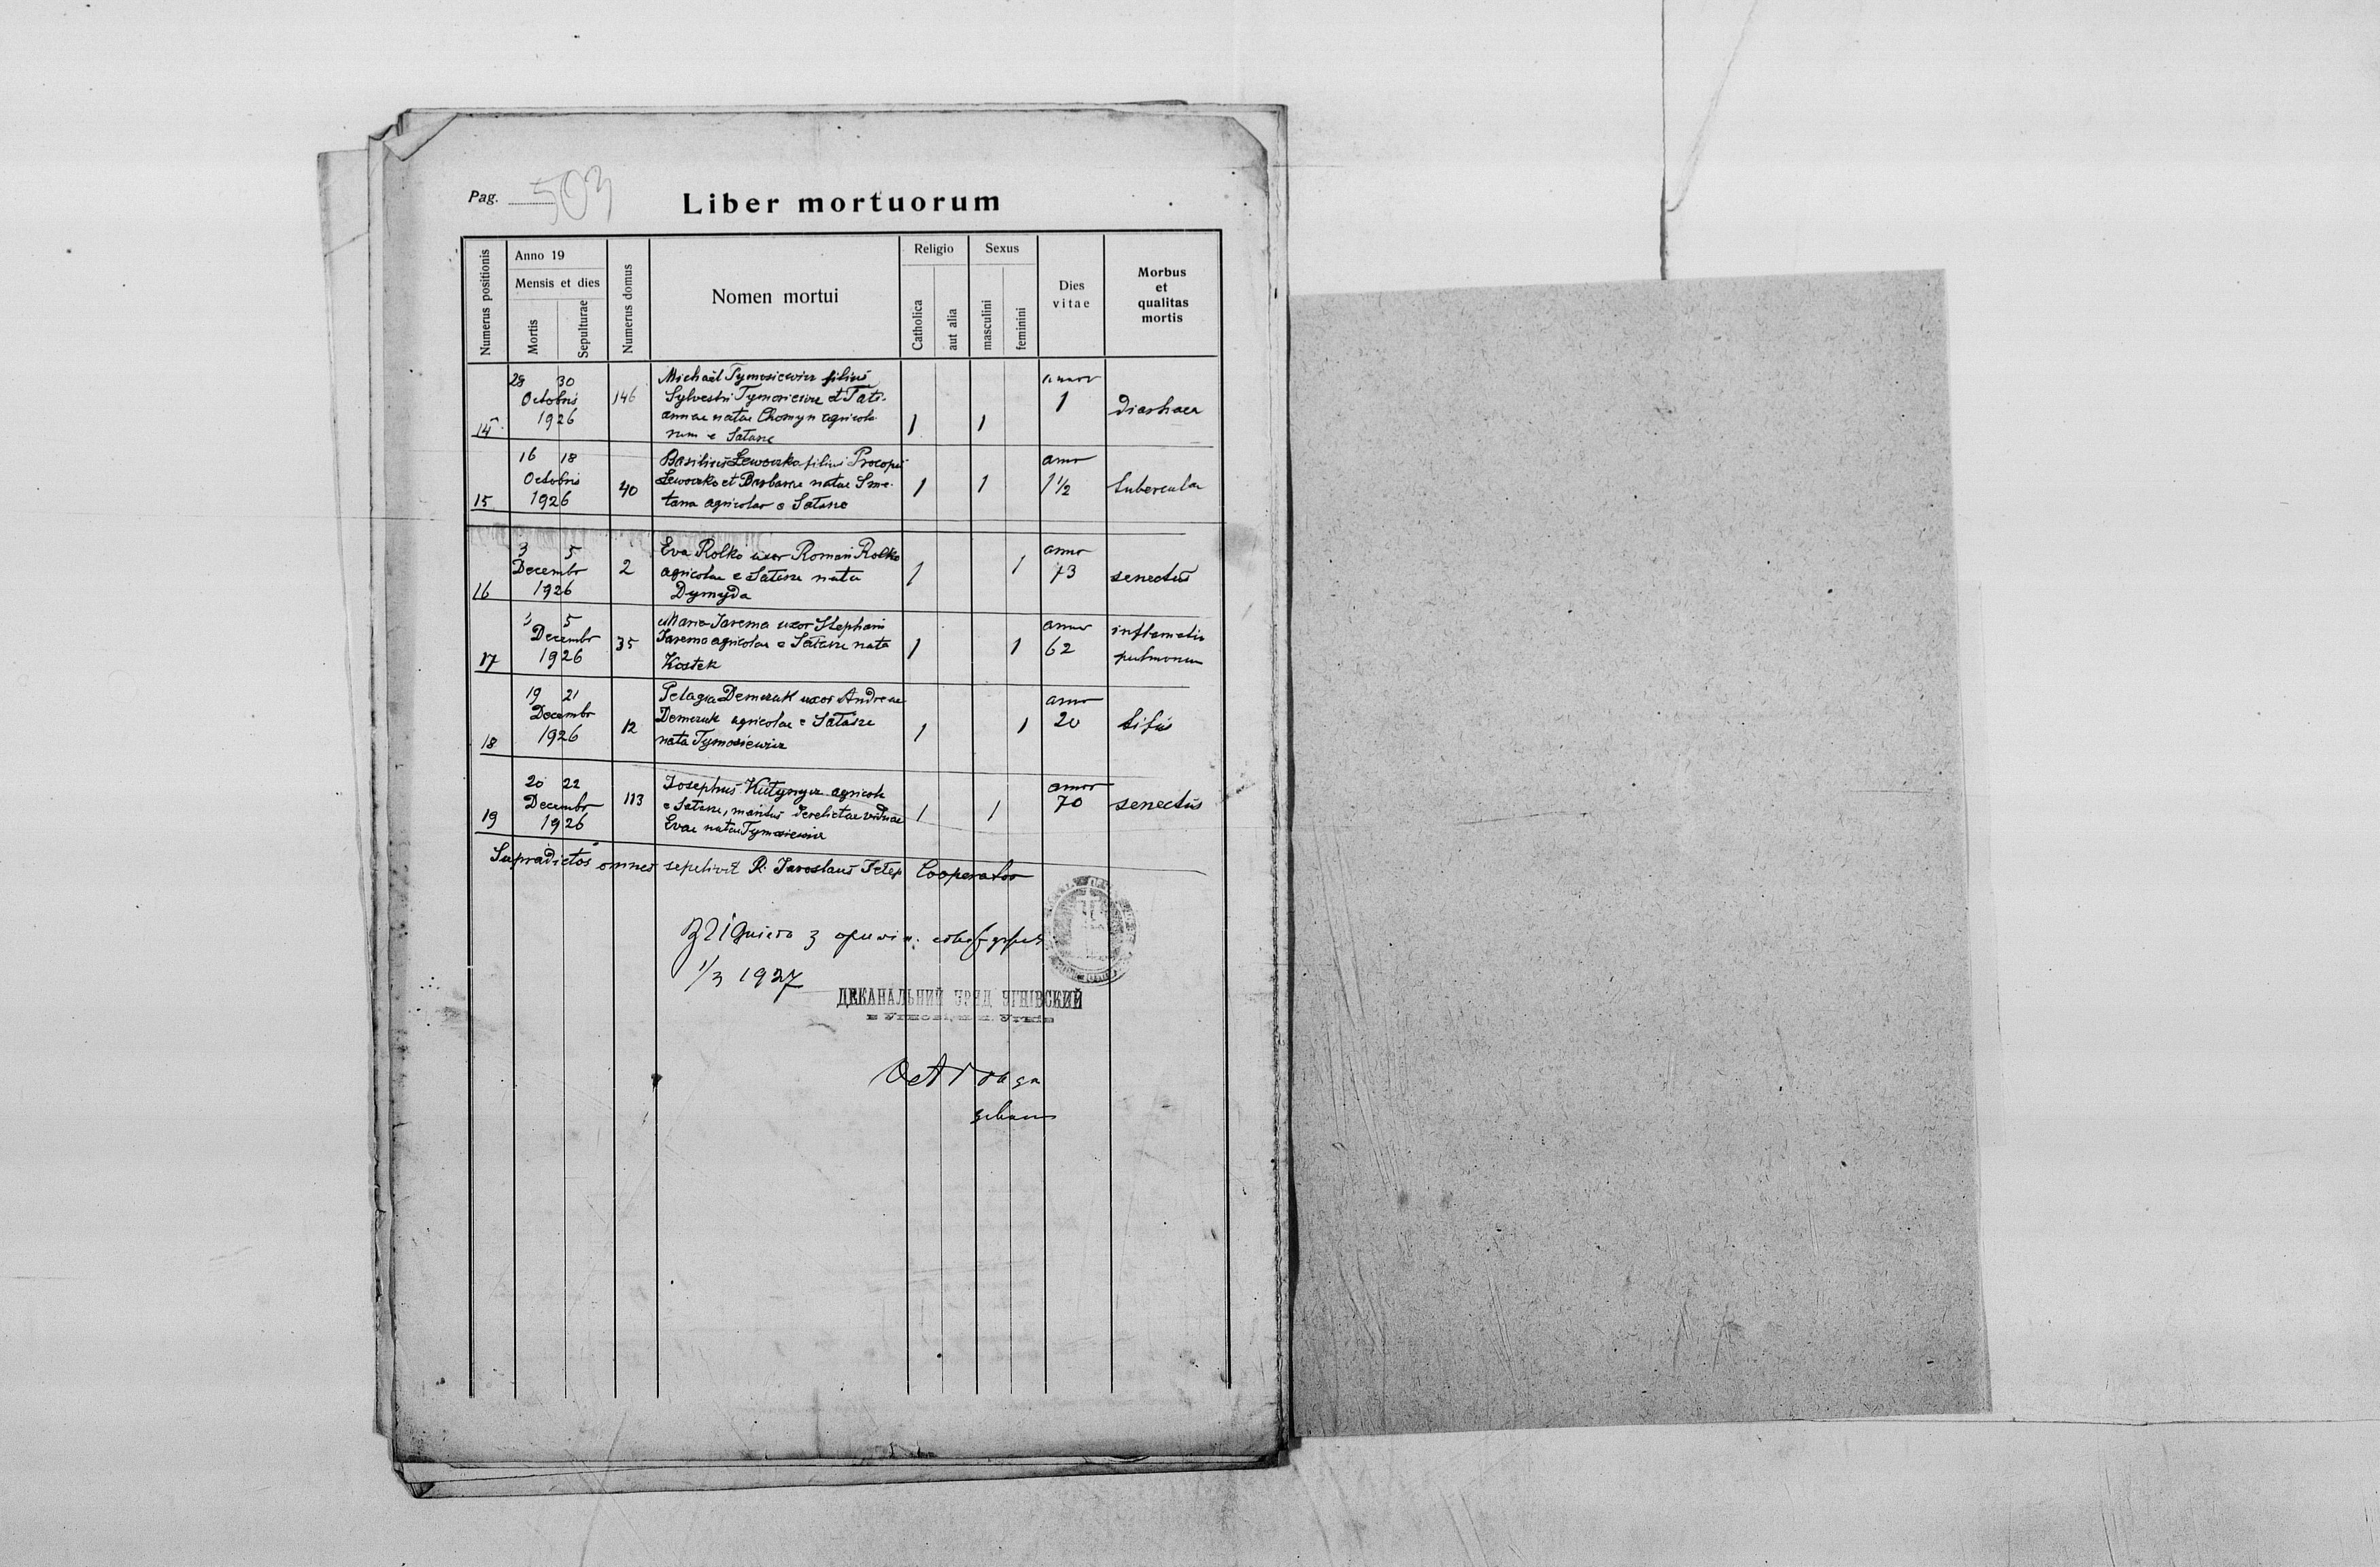 Pag. 503
Liber mortuorum
Numerus positionis
Anno 19
Mensis et dies
Mortis
Sepulturae
Numerus domus
Nomen mortui
Religio
Catholica
aut alia
Sexus
masculini
feminini
Dies
vitae
Morbus
et
qualitas
mortis
14
28 30
Octobris
1926
146
Michaël Tymosiewicz filius
Sylvestri Tymosiewicz et Tati-
annae natae Chomyn agricola-
rum e Sałasze
1
1
annor
1
diarhaea
15
16 18
Octobris
1926
40
Basilius Lewoczko filius Procopii
Lewoczko et Barbarae natae Sme-
tana agricolar e Sałasze
1
1
anno
1 1/2
tubercula
16
3 5
Decembr
1926
2
Eva Rolko uxor Romani Rolko
agricolae e Sałasze nata
Dymyda
1
1
anno
73
senectus
17
3 5
Decembr
1926
35
Maria Jarema uxor Stephani
Jarema agricolae e Sałasze nata
Kostek
1
1
anno
62
inflamatio
pulmonum
18
19 21
Decembr
1926
12
Pelagia Demczuk uxor Andreae
Demczuk agricolae e Sałasze
nata Tymosiewicz
1
1
anno
20
tifus
19
20 22
Decembr
1926
113
Josephus agricola
e Sałasze, maritus derelictae viduae
Evae natae Tymosiewicz
1
1
annor
70
senectus
Supradictos omnes sepelivit R. Jaroslaus Cooperator
з
1/3 1927
ДЕКАНАЛЬНИЙ УРЯД УГНІВСКИЙ